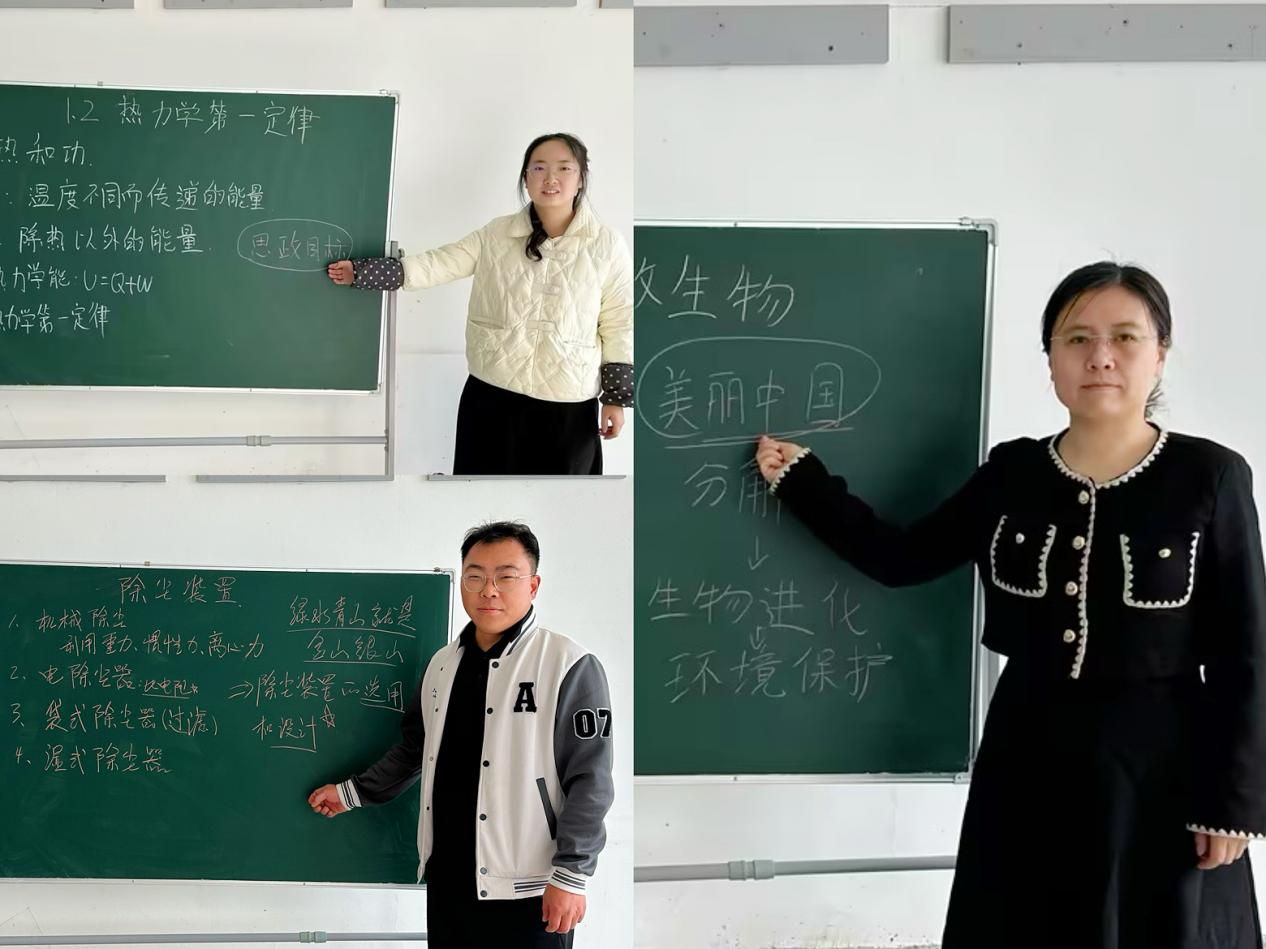 1.2 热力学第一定律
热和功.
: 温度不同而传递的能量
除热以外的能量
思政目标
热力学能: U=Q+W
热力学第一定律
除尘装置
1、机械除尘
利用重力、惯性力、离心力
2、电除尘器:
3、袋式除尘器(过滤)
4、湿式除尘器
绿水青山就是
金山银山
⇒除尘装置的选用
和设计☆
A
07
生物
美丽中国
分解
↓
生物进化
↓
环境保护